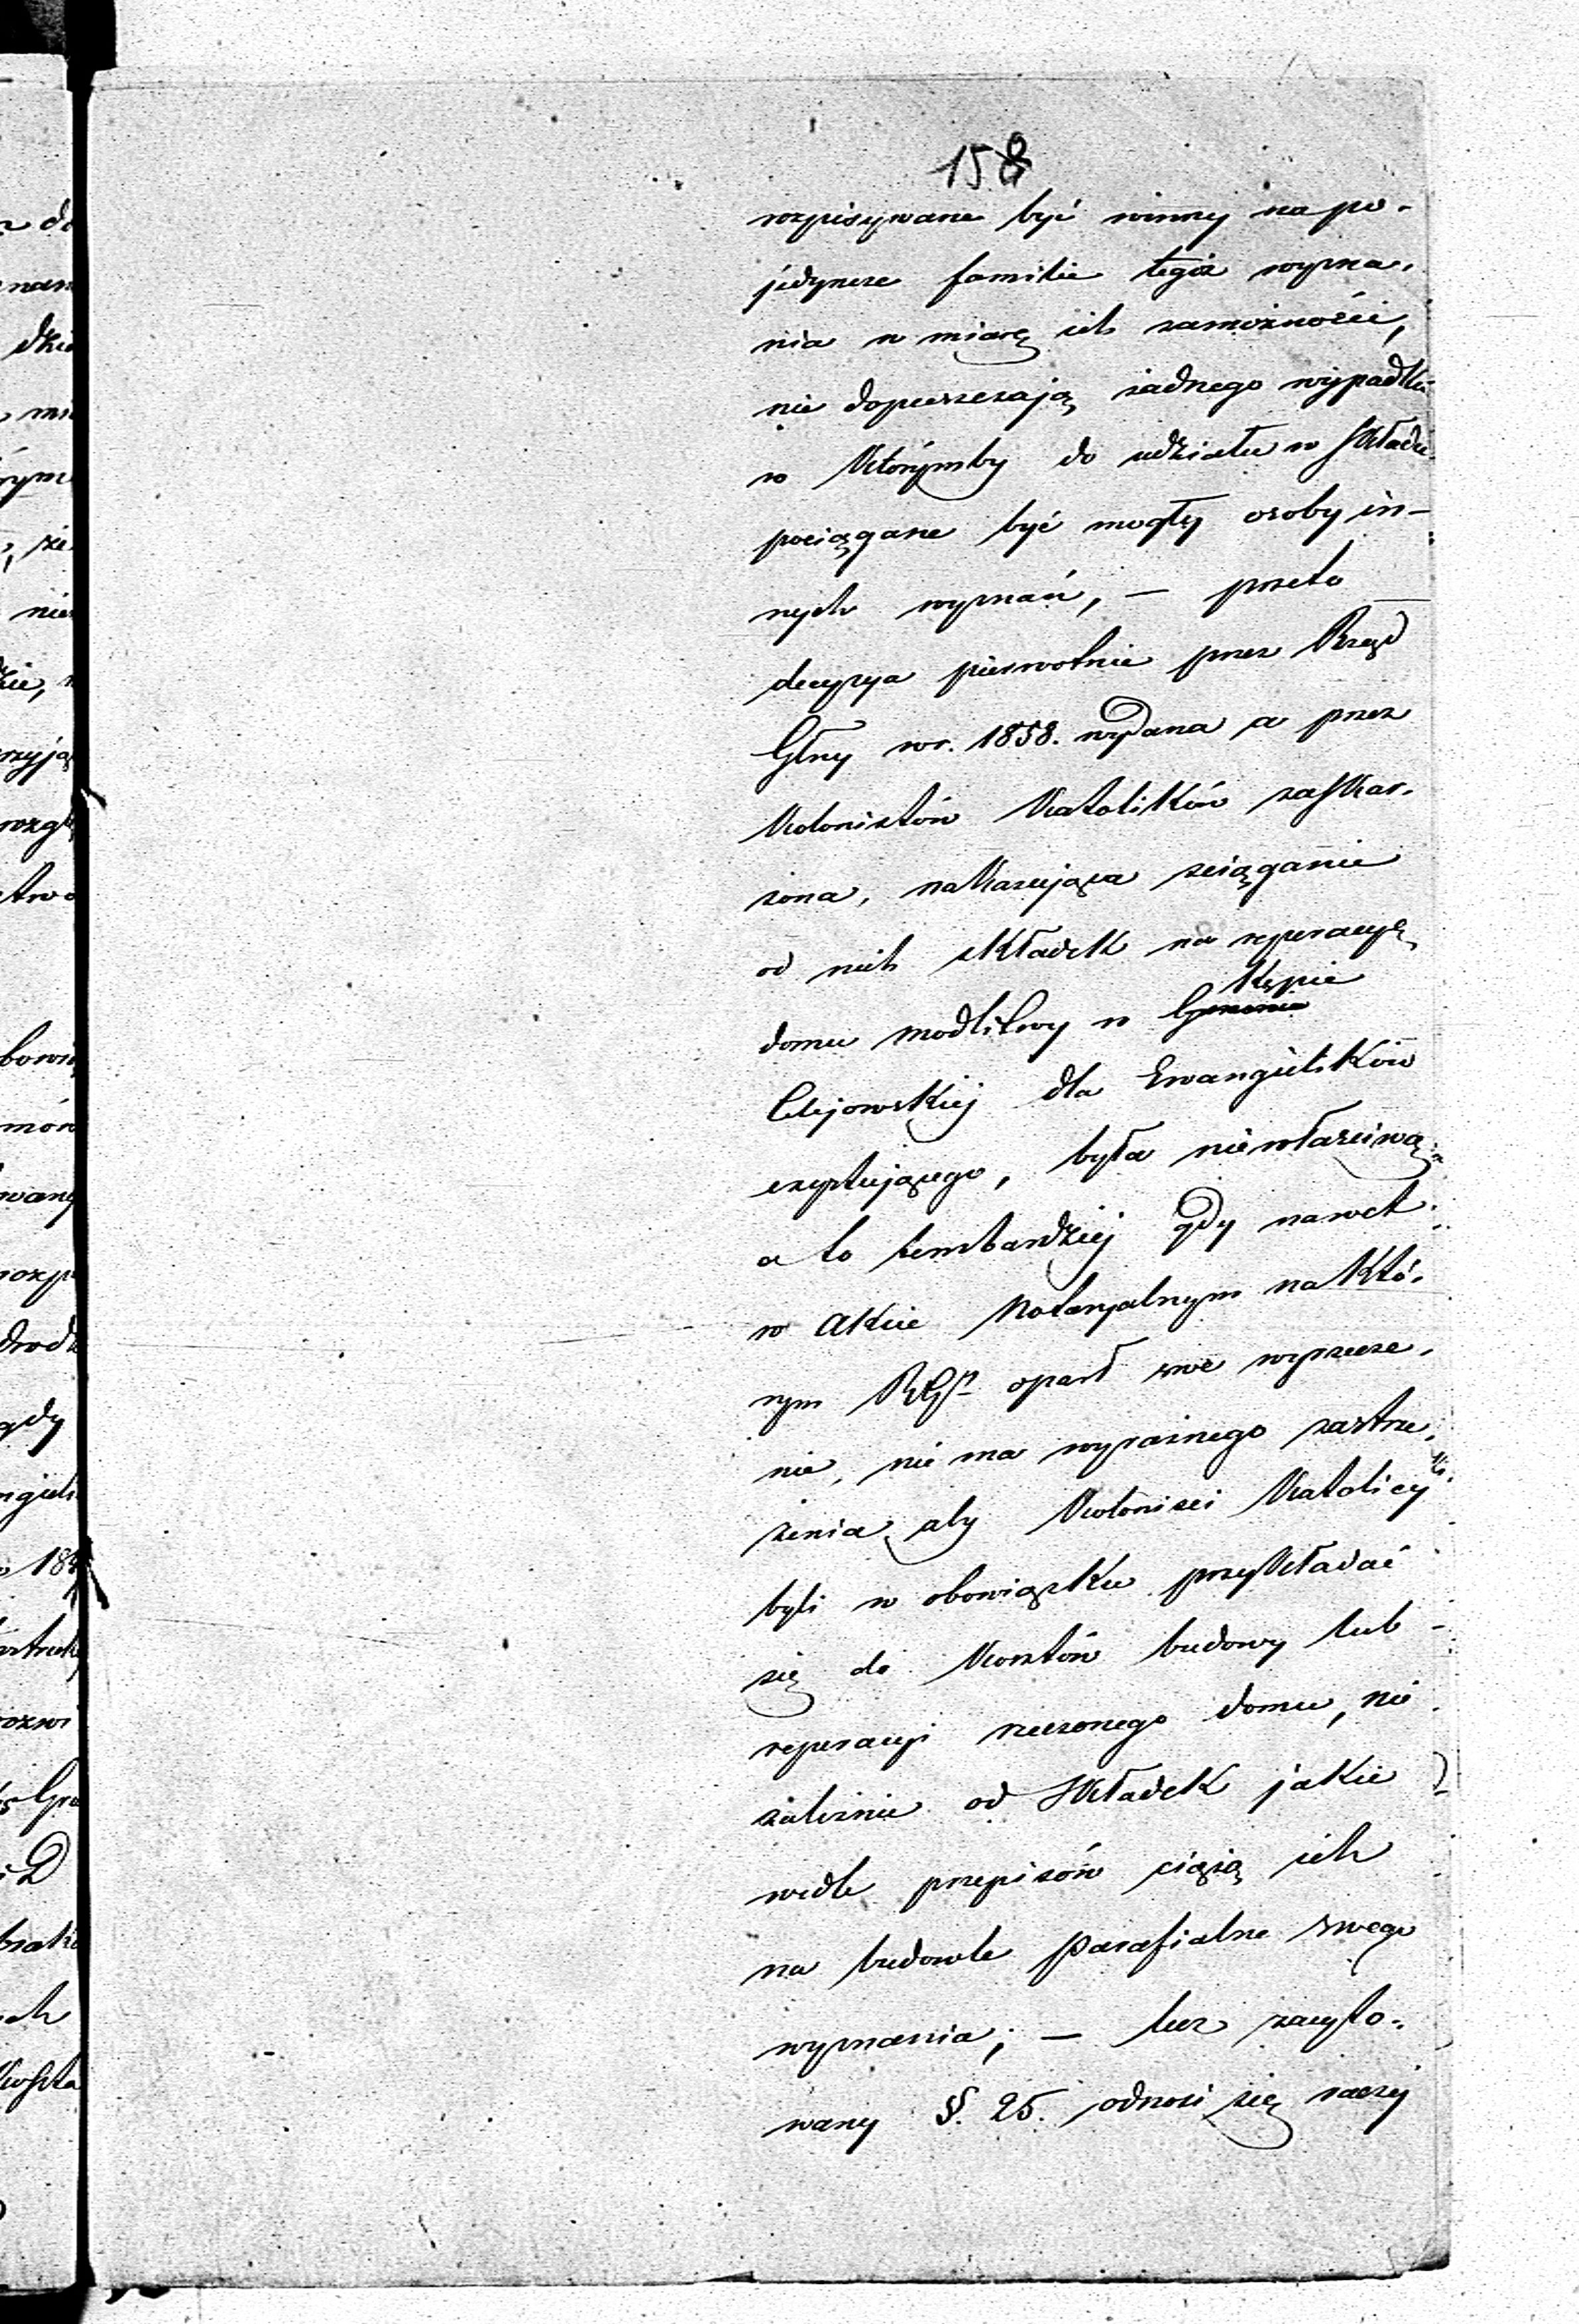 158
rozpisywane być winny na po-
jedyncze familie tegóż wyzna-
nia w miarę ich zamożności,
nie dopuszczają żadnego wypadku
w którymby do udziału w składce
pociągane być mogły osoby in-
nych wyznań, — przeto
decyzya pierwotnie przez Rząd
Głny w r. 1858. wydana a przez
Kolonistów Katolików zaskar-
żona, nakazująca ściąganie
od nich składek na reperacyę
domu modlitwy w Gminie Kępie
Celejowskiej dla Ewangielików
exystującego, była niewłaściwą
a to tembardziej gdy nawet
w akcie Notaryalnym na któ-
rym RGn oparł swe wyrzecze-
nie, nie ma wyraźnego zastrze-
żenia aby Koloniści Katolicy
byli w obowiązku przykładać
się do kosztów budowy lub
reperacyi rzeczonego domu, nie
zależnie od składek jakie
wedle przepisów ciążą ich
na budowle parafialne swego
wyznania; — lecz zacyto-
wany §. 25. odnosi się raczej